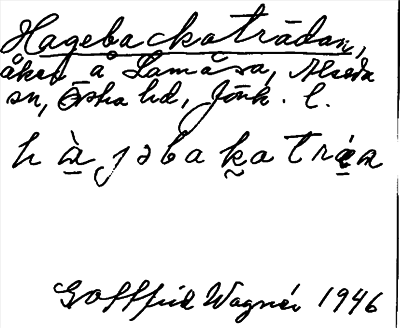 Hagebackaträdan,
åker å Lamåsa, Alseda
sn, Östra hd, Jönk. l.
hàjəbakatráa
Gottfrid Wagnér 1946